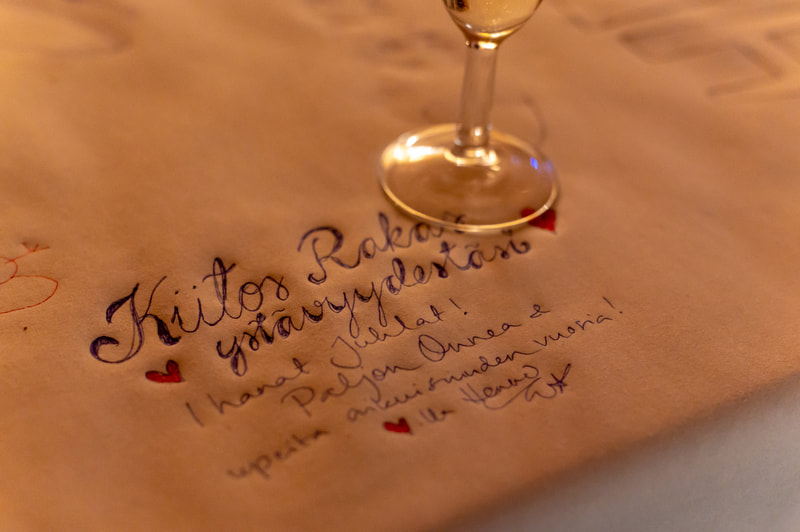 Kiitos Rakas
ystävyydestäsi
Ihanat Juhlat!
Paljon Onnea &
upeita aikuisuuden vuosia!